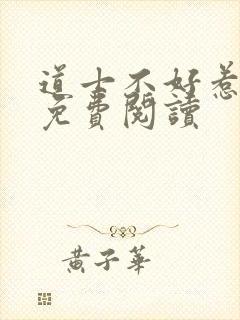 道士不好惹
免費閱讀
黃子華